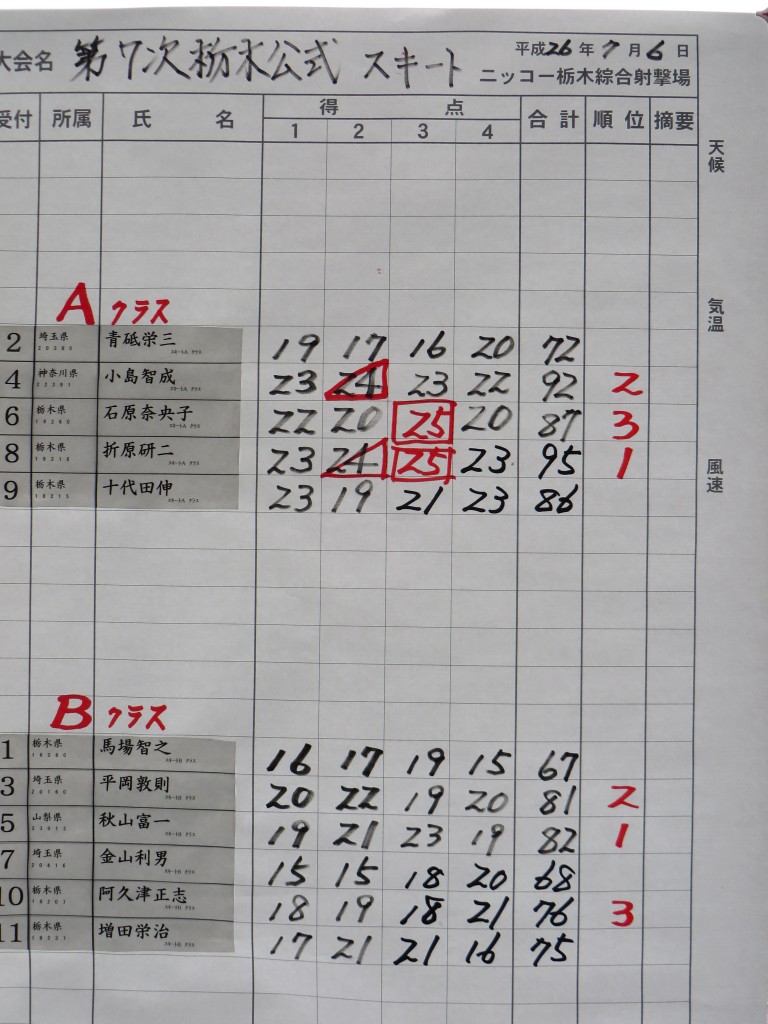 大会名 第7次栃木公式 スキート 平成26年7月6日
ニッコー栃木綜合射撃場
受付 所属 氏名 得点 合計 順位 摘要
1 2 3 4
天候
気温
風速
Aクラス
2 埼玉県 青砥栄三 19 17 16 20 72
4 神奈川県 小島智成 23 24 23 22 92 2
6 栃木県 石原奈央子 22 20 25 20 87 3
8 栃木県 折原研二 23 24 25 23 95 1
9 栃木県 十代田伸 23 19 21 23 86
Bクラス
1 栃木県 馬場智之 16 17 19 15 67
3 埼玉県 平岡敦則 20 22 19 20 81 2
5 山梨県 秋山富一 19 21 23 19 82 1
7 埼玉県 金山利男 15 15 18 20 68
10 栃木県 阿久津正志 18 19 18 21 76 3
11 栃木県 増田栄治 17 21 21 16 75